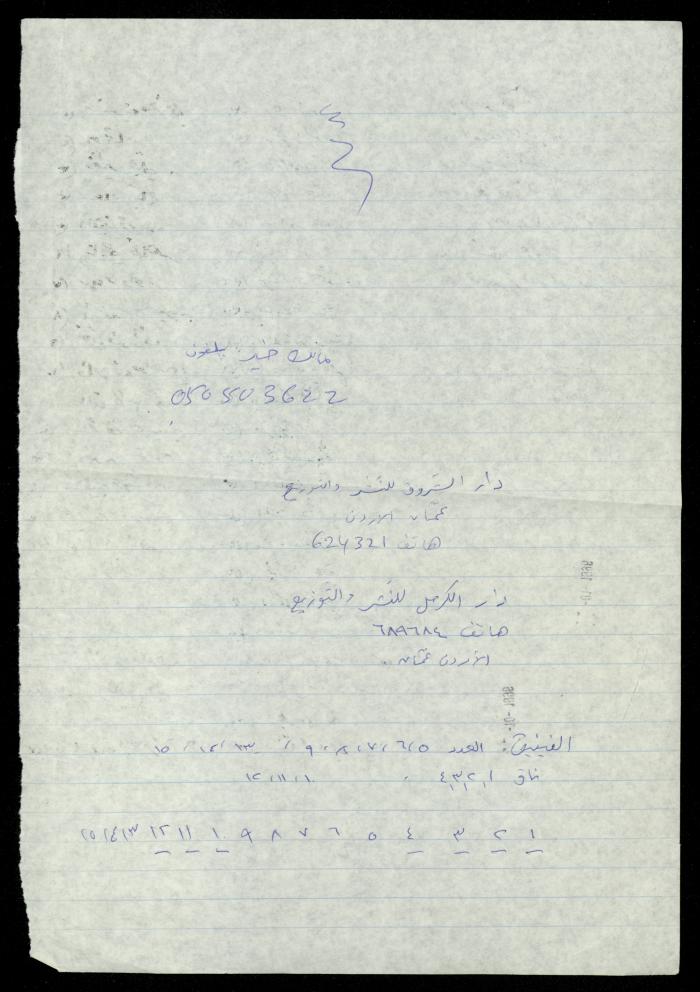 050503622
دار الشروق للنشر والتوزيع
عمّان الأردن
هاتف 624321
دار الكرمل للنشر والتوزيع
هاتف ٦٨٩٦٨٤
الأردن عمّان.
الفينيق: العدد ٥، ٦، ٧، ٨، ٩، ١٣، ١٤، ١٥
١، ٢، ٣، ٤ ١٠، ١١، ١٢
١ ٢ ٣ ٤ ٥ ٦ ٧ ٨ ٩ ١٠ ١١ ١٢ ١٣ ١٤ ١٥